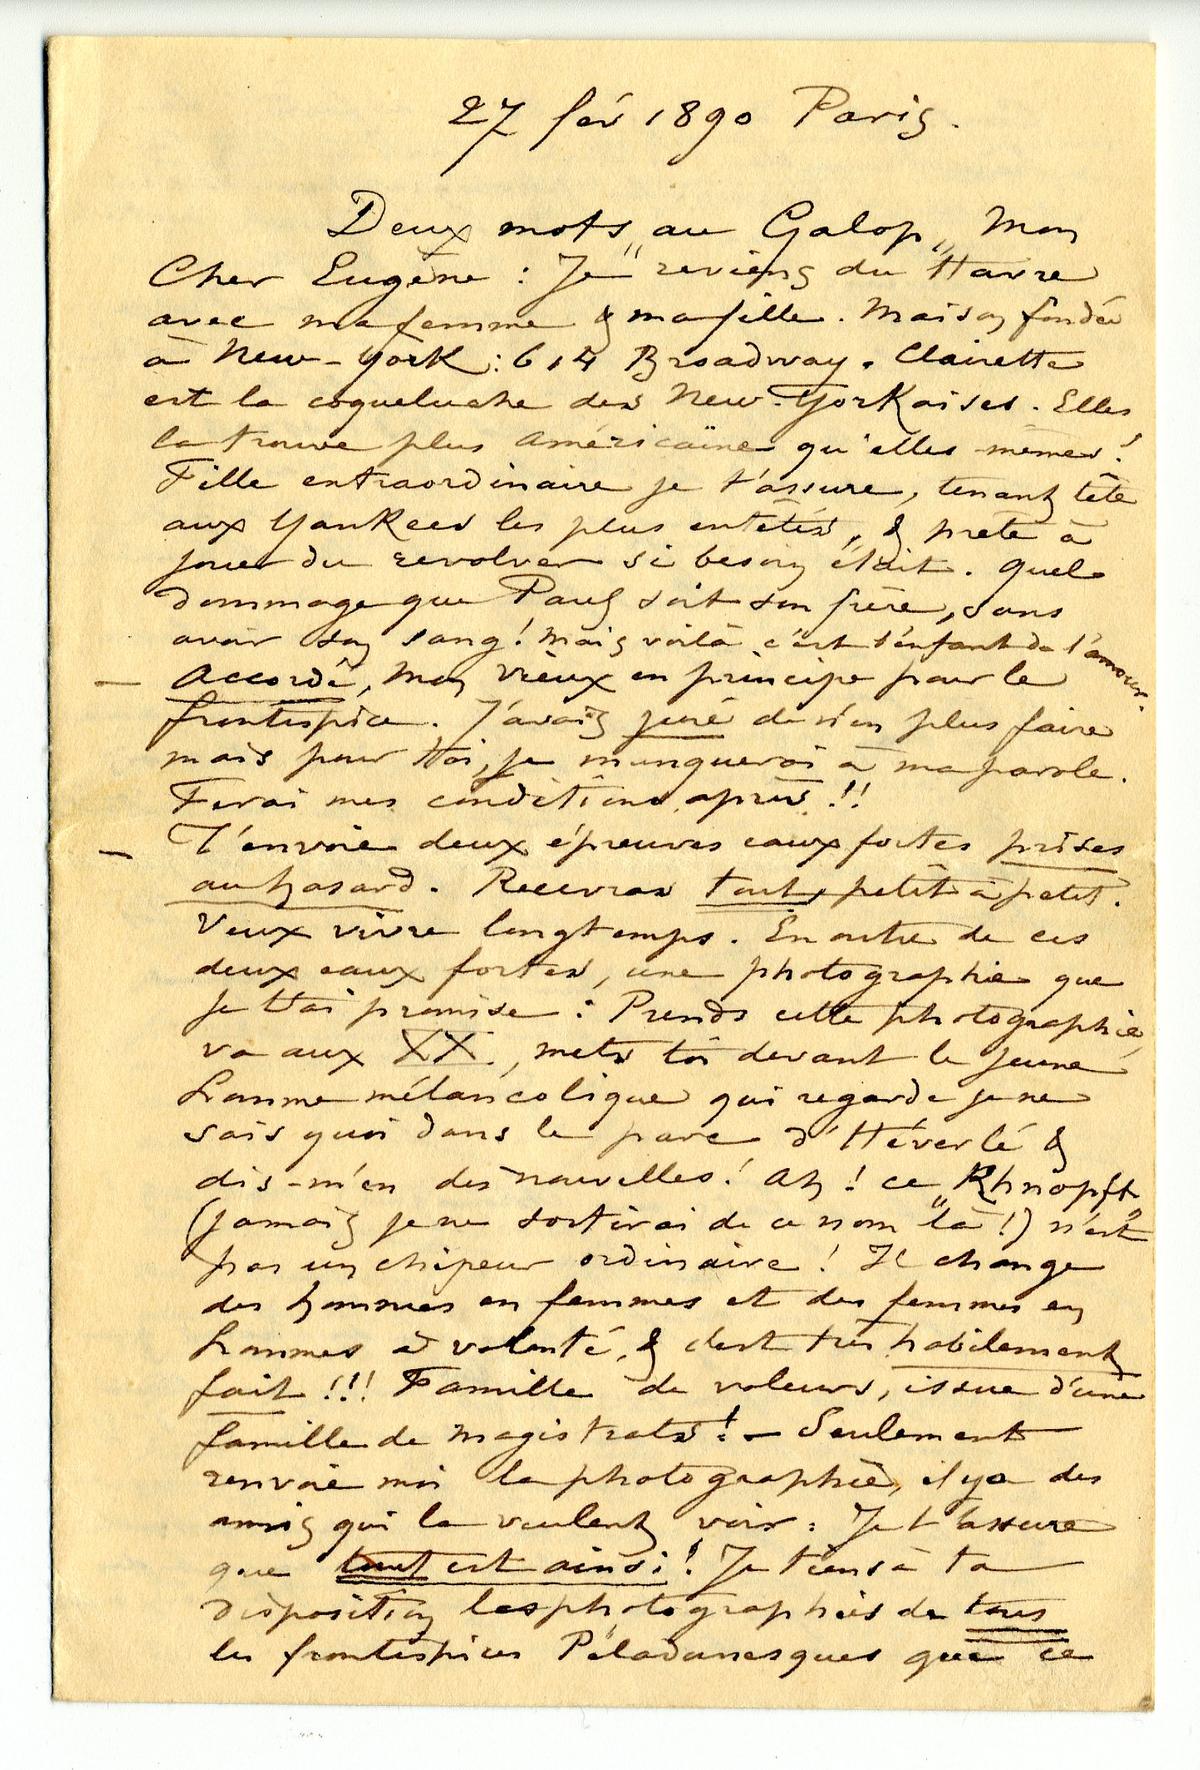 27 fév 1890 Paris.
Deux mots "au Galop" Mon
Cher Eugène : Je reviens du Havre
avec ma femme & ma fille. Maison fondée
à New-York : 614 Broadway. Clairette
est la coqueluche des New-Yorkaises. Elles
la trouve plus américaïne qu'elles mêmes !
Fille extraordinaire je t'assure, tenant tête
aux Yankees les plus entêtés, & prete à
jouer du revolver si besoin était. Quel
dommage que Paul soit son frère, sans
avoir son sang ! Mais voilà c'est l'enfant de l'amour.
— Accordé, mon vieux en principe pour le
frontispice. J'avais juré de n'en plus faire
mais pour toi, je manquerai à ma parole.
Ferai mes conditions après !!
— T'envoie deux épreuves eaux fortes prises
au hasard. Recevras tout, petit à petit.
Veux vivre longtemps. En outre de ces
deux eaux fortes, une photographie que
je t'ai promise : Prends cette photographie,
va aux XX., mets toi devant le jeune
homme mélancolique qui regarde je ne
sais quoi dans le parc d'Héverlé &
dis-m'en des nouvelles ! Ah ! ce "Khnopff"
(jamais je ne sortirai de ce nom là !) n'est
pas un chipeur ordinaire ! Il change
des hommes en femmes et des femmes en
hommes à volonté, & c'est très habilement
fait !!! Famille de voleurs, issue d'une
famille de magistrats ! — Seulement
renvoie moi la photographie, il y a des
amis qui la veulent voir : Je t'assure
que tout est ainsi ! Je tiens à ta
disposition les photographies de tous
les frontispices Péladanesques que ce